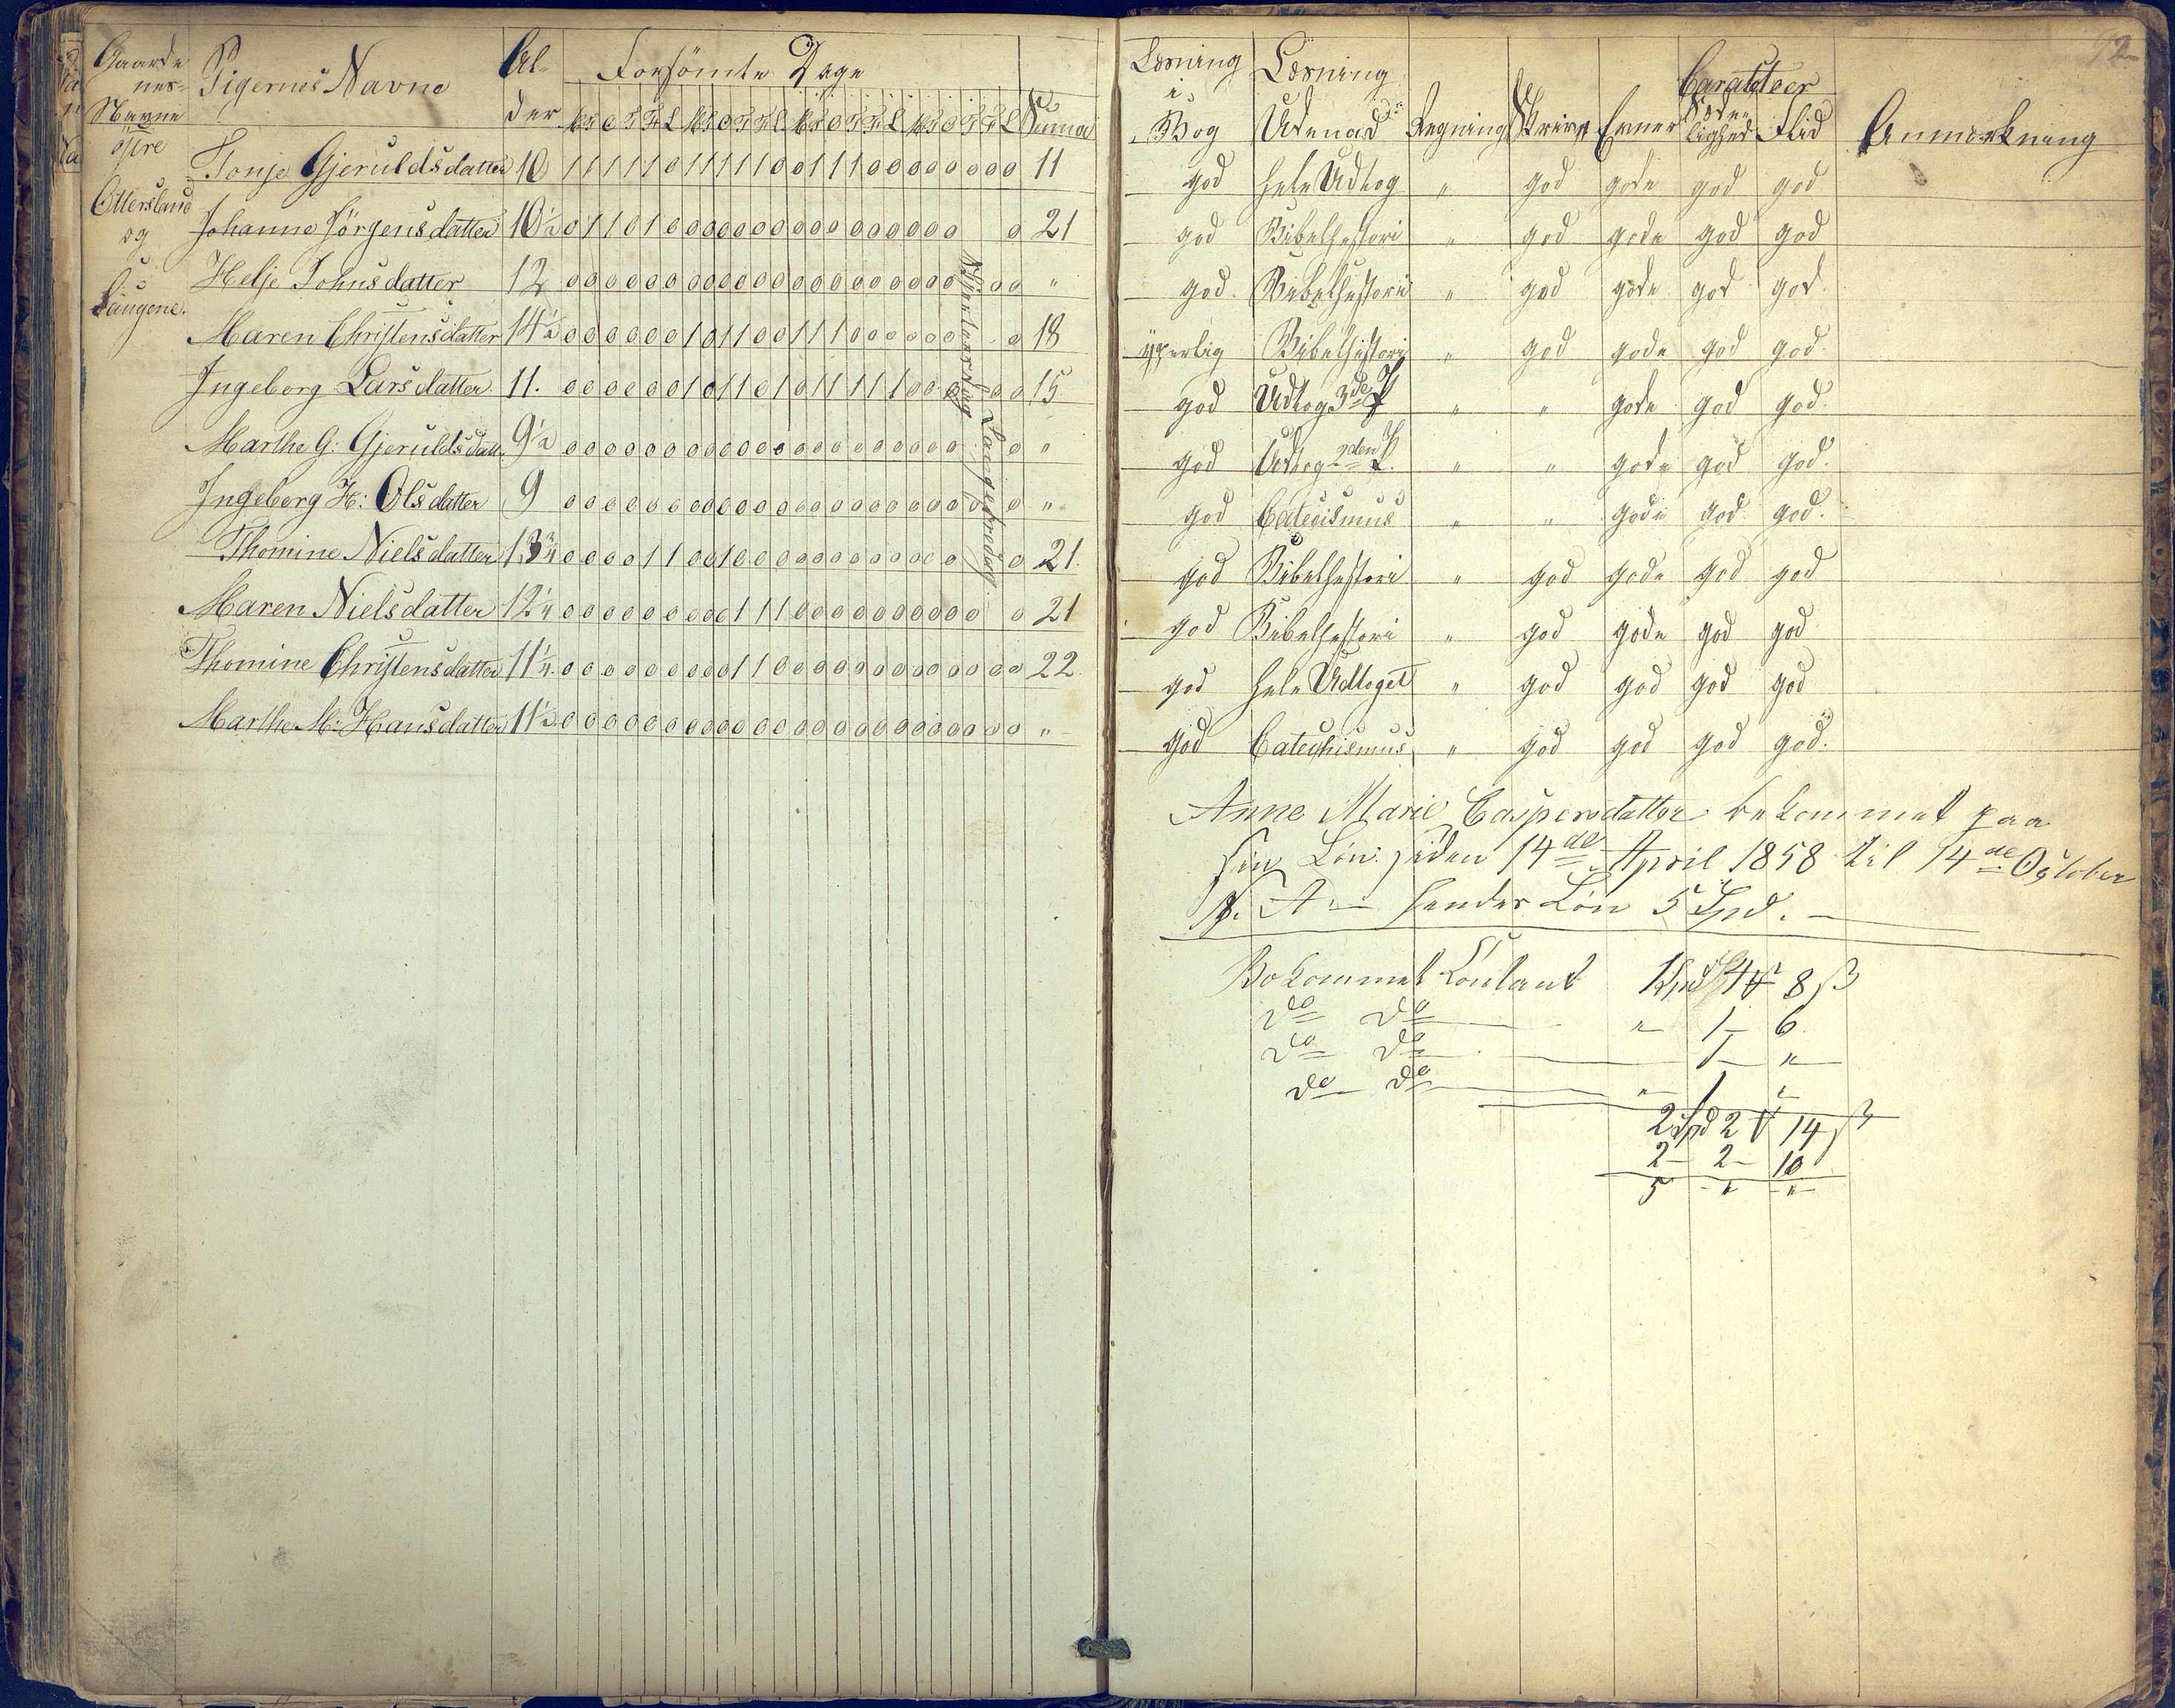 Gaarde nes Navne Pigernes Navne Alder Forsömte Dage Summa
M T O T F L M T O T F L M T O T F L M T O T F L
Östre Ottersland og Laugene.
Tonje Gjeruldsdatter 10 1 1 1 1 1 0 1 1 1 1 1 0 0 1 1 1 0 0 0 0 0 0 0 0 11
Johanne Jörgensdatter 10½ 0 1 1 0 1 0 0 0 0 0 0 0 0 0 0 0 0 0 0 0 0 0 21
Helje Johnsdatter 12 0 0 0 0 0 0 0 0 0 0 0 0 0 0 0 0 0 0 0 0 0 0 0 "
Maren Christensdatter 14½ 0 0 0 0 0 0 1 0 1 1 0 0 1 1 1 0 0 0 0 0 0 0 18
Ingeborg Larsdatter 11. 0 0 0 0 0 0 1 0 1 1 0 1 0 1 1 1 1 1 0 0 0 0 0 15
Marthe G: Gjeruldsdatt. 9½ 0 0 0 0 0 0 0 0 0 0 0 0 0 0 0 0 0 0 0 0 0 0 "
Ingeborg H: Olsdatter 9 0 0 0 0 0 0 0 0 0 0 0 0 0 0 0 0 0 0 0 0 0 0 0 "
Thomine Nielsdatter 13¾ 0 0 0 0 1 1 0 0 1 0 0 0 0 0 0 0 0 0 0 0 0 0 21.
Maren Nielsdatter 12¼ 0 0 0 0 0 0 0 0 0 1 1 1 0 0 0 0 0 0 0 0 0 0 0 21
Thomine Christensdatter 11¼. 0 0 0 0 0 0 0 0 0 1 1 0 0 0 0 0 0 0 0 0 0 0 0 0 22.
Marthe M: Hansdatter 11½ 0 0 0 0 0 0 0 0 0 0 0 0 0 0 0 0 0 0 0 0 0 0 0 0 "
Langefredag
Læsning i Bog Læsning Udenad Regning Skrivn Evner Caracteer Sædelighed Flid Anmærkning
god hele Udtog " god gode god god
god Bibelhestori " god gode god god
god. Bibelhestori " god gode god god.
ÿperlig Bibelhistori " god gode god god
god Udtog 3de P " " gode god god.
god Udtog 2den P. " " gode god god.
god Catecismus " " gode god god.
god Bibelhestori " god gode god god
god Bibelhestori " god gode god god
god hele Udtoget " god god god god
god Catechismus " god god god god.
Anne Marie Caspersdatter bekommet paa
sin Lön siden 14de April 1858 til 14de October
s. A – hendes Lön 5 Spd.
Bekommet Contant 1 Spd 4 8 ß
do do " 1 – 6
do do 1 – "
do do " 1 "
2 Spd 2 14 ß
2 – 2 – 10
5 – " – "